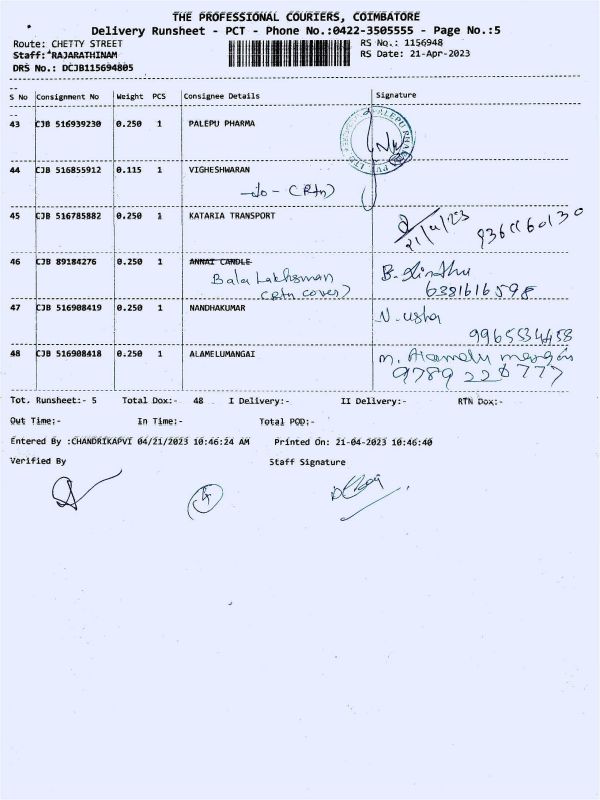 THE PROFESSIONAL COURIERS, COIMBATORE
Delivery Runsheet - PCT - Phone No.:0422-3505555 - Page No.:5
Route: CHETTY STREET RS No.: 1156948
Staff:*RAJARATHINAM RS Date: 21-Apr-2023
DRS No.: DCJB115694805
S No Consignment No Weight PCS Consignee Details Signature
43 CJB 516939230 0.250 1 PALEPU PHARMA
44 CJB 516855912 0.115 1 VIGHESHWARAN
(Rtn)
45 CJB 516785882 0.250 1 KATARIA TRANSPORT
21/4/23
46 CJB 89184276 0.250 1 ANNAI CANDLE
Bala Lakhsman
(Rtn cover)
6381616598
47 CJB 516908419 0.250 1 NANDHAKUMAR N. usha
9965534458
48 CJB 516908418 0.250 1 ALAMELUMANGAI
9789 226777
Tot. Runsheet:- 5 Total Dox:- 48 I Delivery:- II Delivery:- RTN Dox:-
Out Time:- In Time:- Total POD:-
Entered By :CHANDRIKAPVI 04/21/2023 10:46:24 AM Printed On: 21-04-2023 10:46:40
Verified By Staff Signature